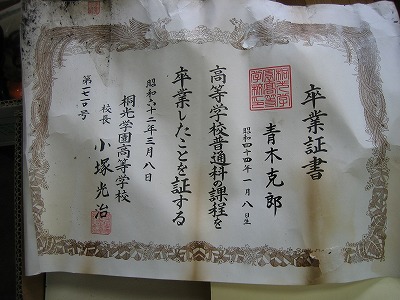 卒業証書
青木克郎
昭和四十四年一月八日生
高等学校普通科の課程を
卒業したことを証する
昭和六十二年三月八日
桐光学園高等学校
校長 小塚光治
第一七二〇号